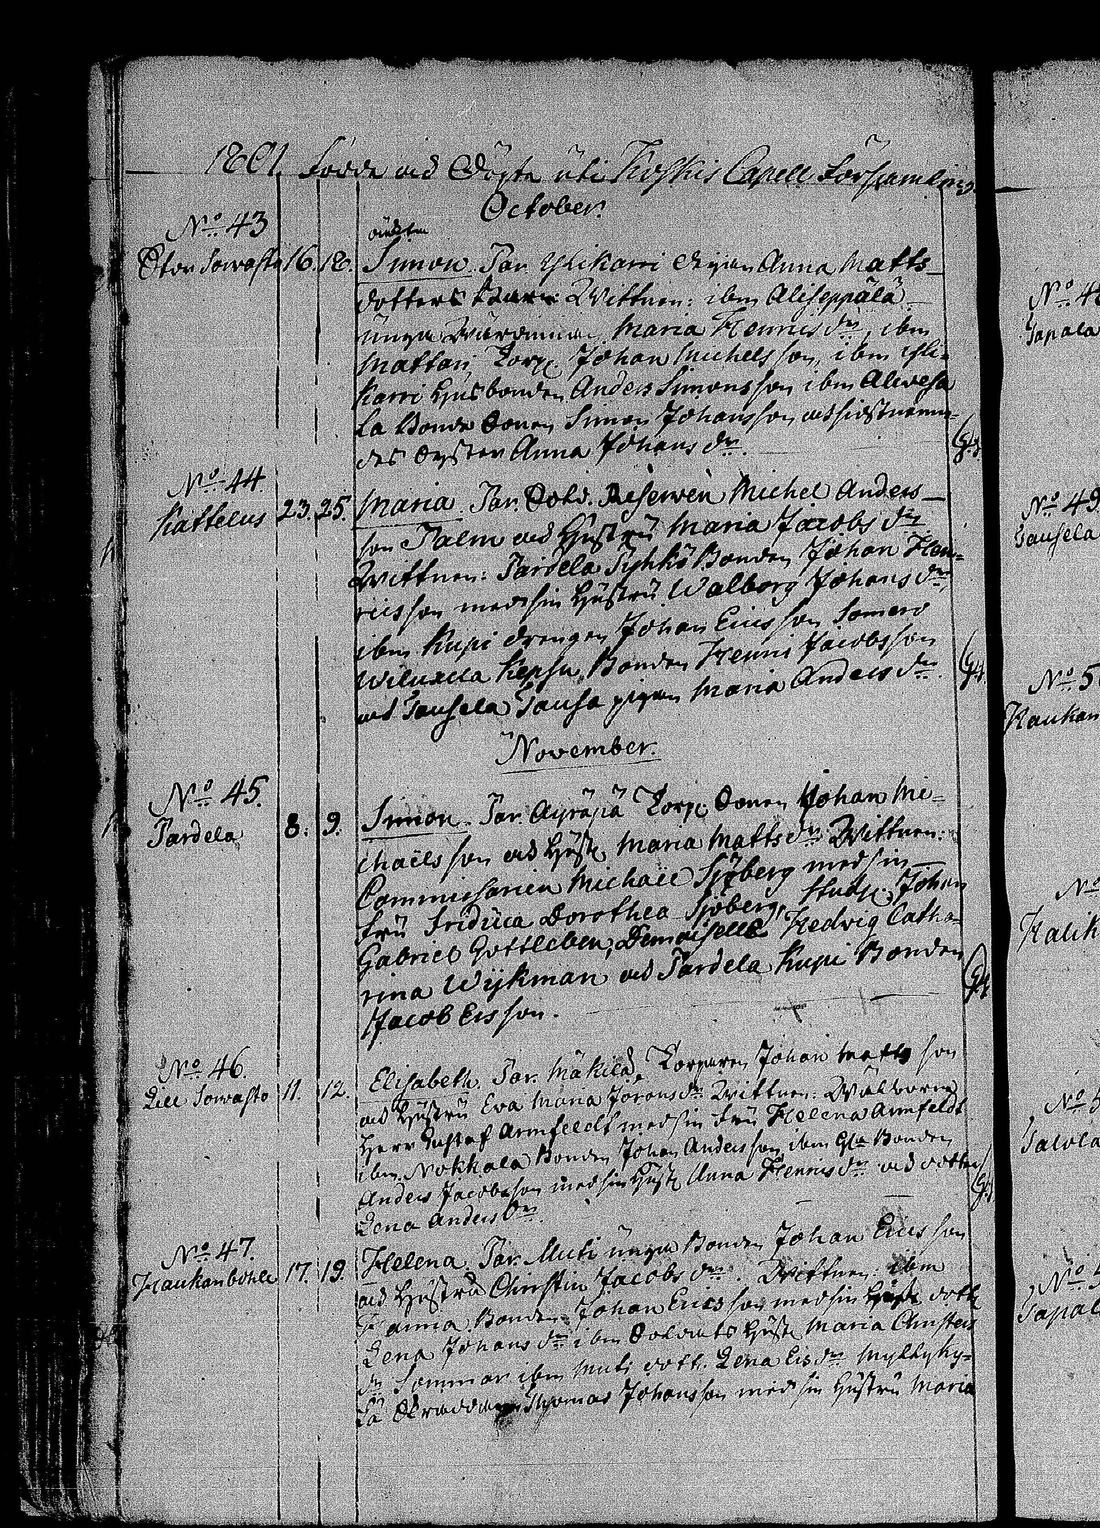 1801. Födde och Döpte uti Koskis Capell Församling
October.
No 43
Stor Sorvasto 16. 18. oäckta
Simon. Par. Ylikarri Pigan Anna Matts
dotters Barn. Wittnen: ibm Aliseppälä
unga Wärdinnan Maria Henricsdr, ibm
Mattari Torp. Johan Michelsson, ibm Yli-
karri Husbonden Anders Simonsson ibm
la Bonde Sonen Simon Johansson och sidstnemn-
des Syster Anna Johansdr.
No 44.
Kattelus 23. 25. Maria. Par. Sold. Reserven Michel Anders-
son Palm och Hustru Maria Jacobsdr
Wittnen: Pardela Pyhkö Bonden Johan Hen-
ricsson med sin Hustru Walborg Johansdr,
ibm Kupi drengen Johan Ericsson Somero
Wiluxela Kepsu Bonden Henric Jacobsson
och Tausela Tausa pigan Maria Andersdr.
November.
No 45.
Pardela 8. 9. Simon. Par. Äyräpä Torp. Sonen Johan Mi-
chaëlsson och Hust. Maria Mattsdr. Wittnen:
Commissarien Michael Sjöberg med sin
Fru Fridrica Dorothea Sjöberg, Stud. Johan
Gabriel Gottleben, Demoiselle Hedvig Catha-
rina Wijkman och Pardela Kupi Bonden
Jacob Ersson.
No 46.
Lill Sorvasto 11. 12. Elisabeth. Par. Mäkilä Torparen Johan Matts son
och Hustru Eva Maria Joransdr Wittnen: Wälborne
Herr Gustaf Armfeldt med sin Fru Helena Armfeldt
ibm Nokkala Bonden Johan Andersson, ibm Bonden
Anders Jacobsson med sin Hust. Anna Henricsdr och dotter
Lena Andersdr.
No 47.
Haukanbohle 17. 19. Helena. Par. Muti unga Bonden Johan Ericsson
och Hustru Christin Jacobsdr. Wittnen: ibm
Bonden Johan Ericsson med sin dott.
Lena Johansdr ibm Soldats Hust. Maria Christers
dr Sommar ibm Muti dott. Lena Ersdr Myllyky-
lä Skräddaren Thomas Johansson med sin Hustru Maria
Tapala
No 49
Tausela
Haukan
No
Talola
Tapal